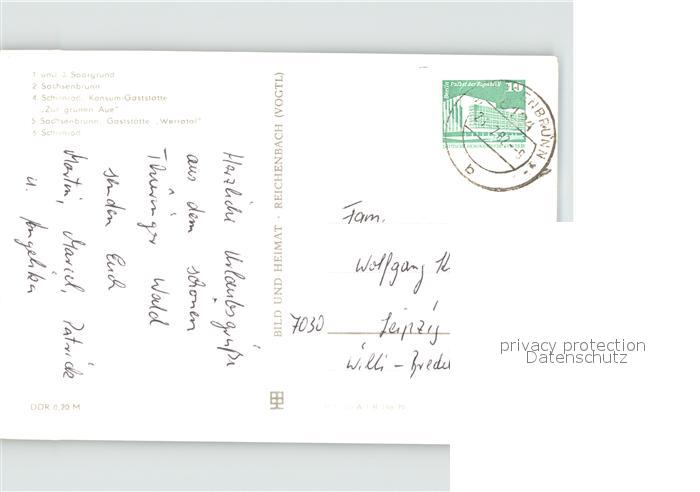 1 und 3 Saargrund
2 Sachsenbrunn
4 Schirnrod, Konsum-Gaststätte
„Zur grünen Aue"
5 Sachsenbrunn, Gaststätte „Werratal"
6 Schirnrod
Herzliche Urlaubsgrüße
aus dem schönen
Thüringer Wald
senden Euch
Martin, Marcel, Patrick
u. Angelika
DDR 0,20 M
BILD UND HEIMAT · REICHENBACH (VOGTL)
Berlin, Palast der Republik
10
DEUTSCHE DEMOKRATISCHE
ENBRUNN
a
Fam.
Wolfgang
7030 Leipzig
Willi - Bredel
privacy protection
Datenschutz